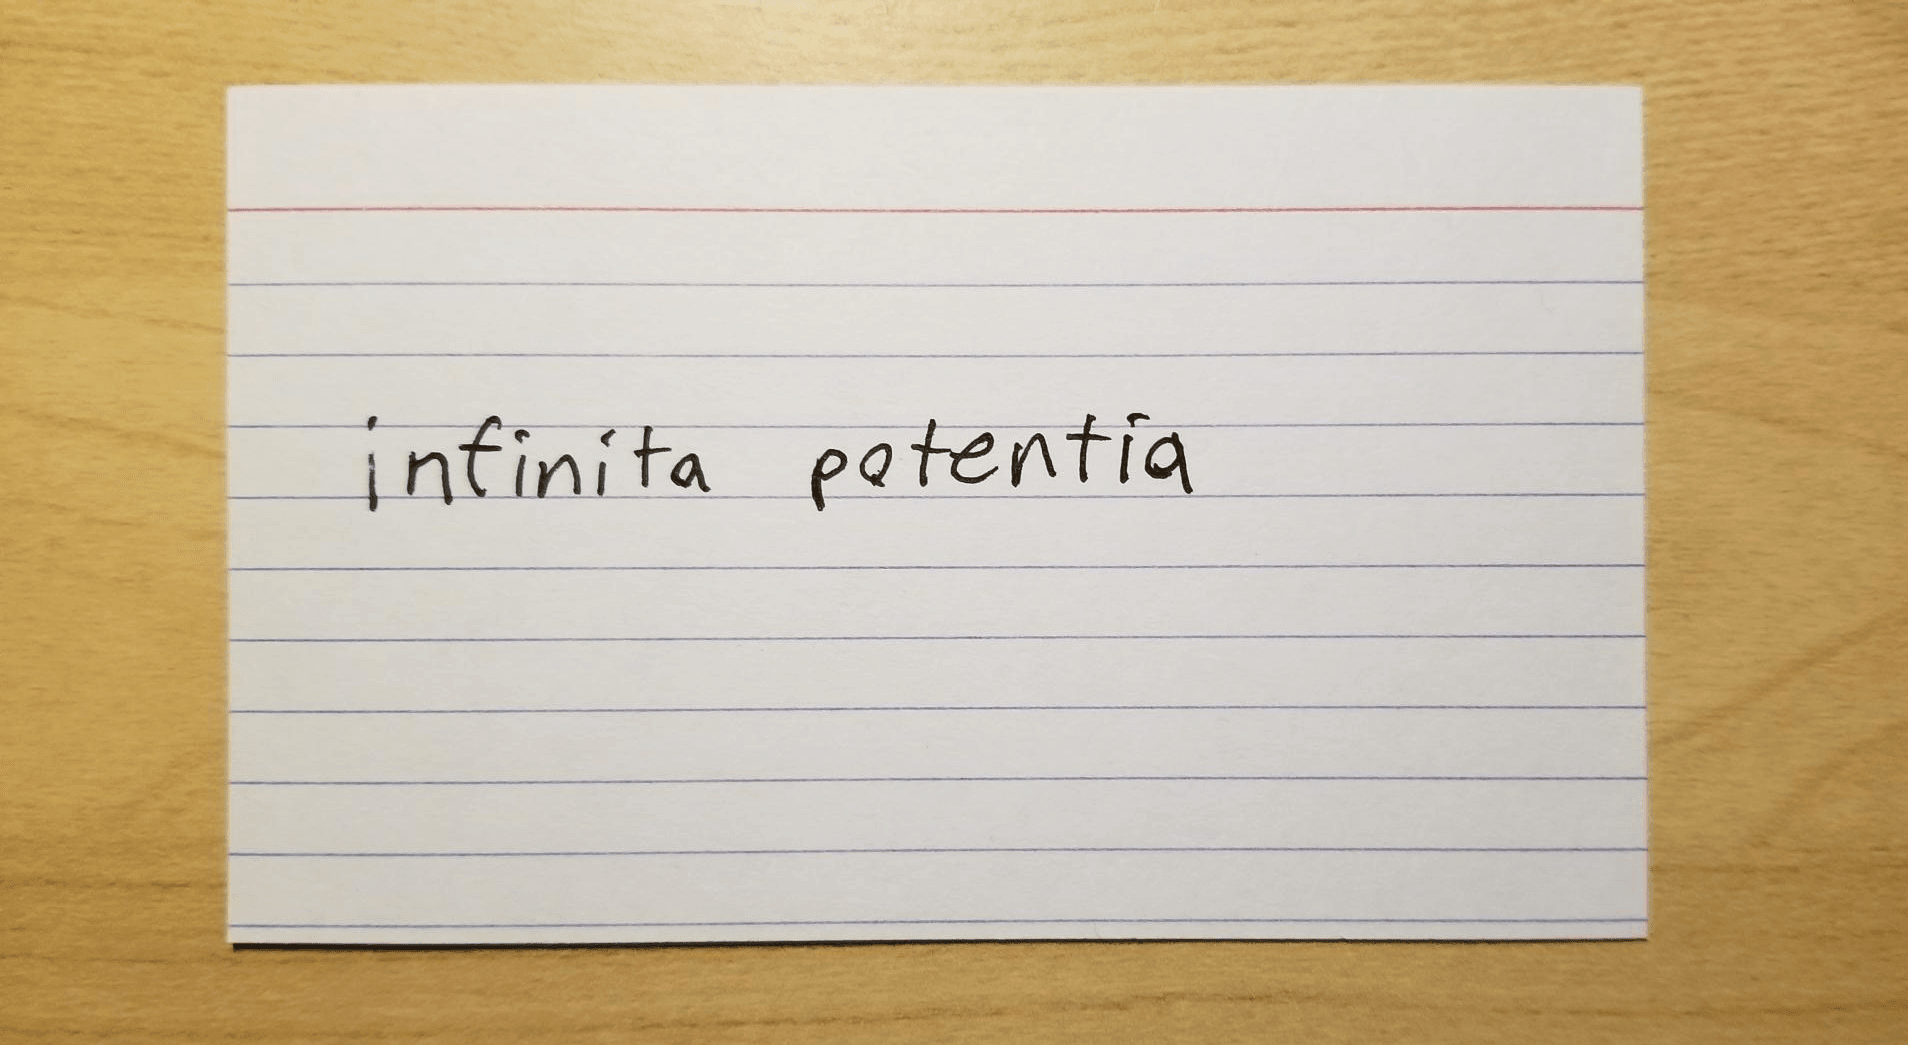 infinita potentia